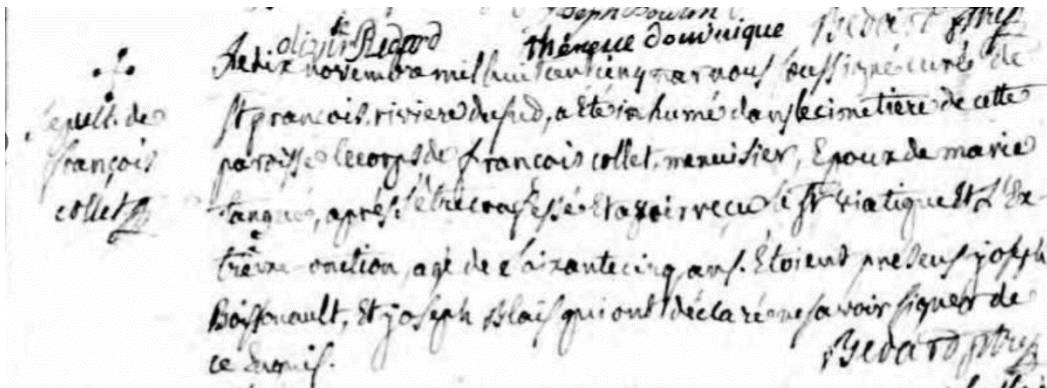 Joseph
olivier Bedard thérese dominique Bedard ptre
Sépult. de
françois
collet
Le dix novembre mil huit cent cinq par nous soussigné curé de
st francois, riviere du sud, a été inhumé dans le cimetière de cette
paroisse le corps de francois collet, menuisier, Epoux de marie
Tangué, après s'être confessé Et avoir reçu le st viatique Et L'Ex-
trême-onction, agé de soixante cinq ans. Etoient presens joseph
Boissonault, Et joseph Blais qui ont déclaré ne savoir signer de
ce Enquis.
Bedard ptre